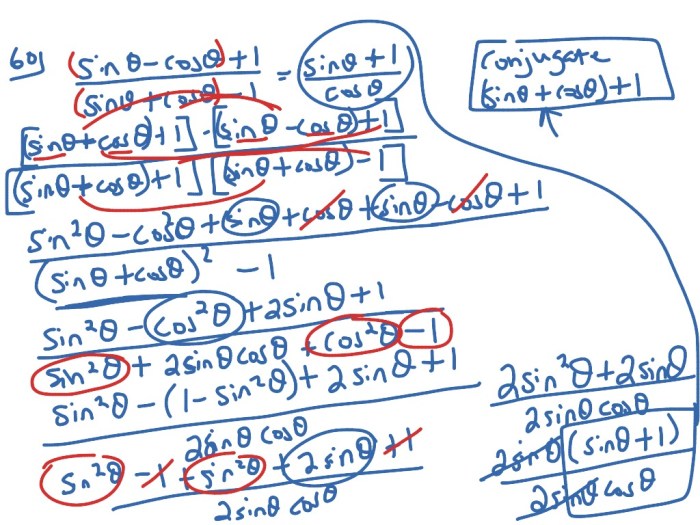 60) (sinθ-cosθ)+1 / (sinθ+cosθ)-1 = sinθ+1 / cosθ
Conjugate
(sinθ+cosθ)+1
[(sinθ+cosθ)+1]·[(sinθ-cosθ)+1]
[(sinθ+cosθ)+1][(sinθ+cosθ)-1]
sin²θ-cos²θ+sinθ+cosθ+sinθ-cosθ+1
(sinθ+cosθ)²-1
sin²θ-cos²θ+2sinθ+1
sin²θ+2sinθcosθ+cos²θ-1
sin²θ-(1-sin²θ)+2sinθ+1
2sinθcosθ
sin²θ-1+sin²θ+2sinθ+1
2sinθcosθ
2sin²θ+2sinθ
2sinθcosθ
2sinθ(sinθ+1)
2sinθcosθ